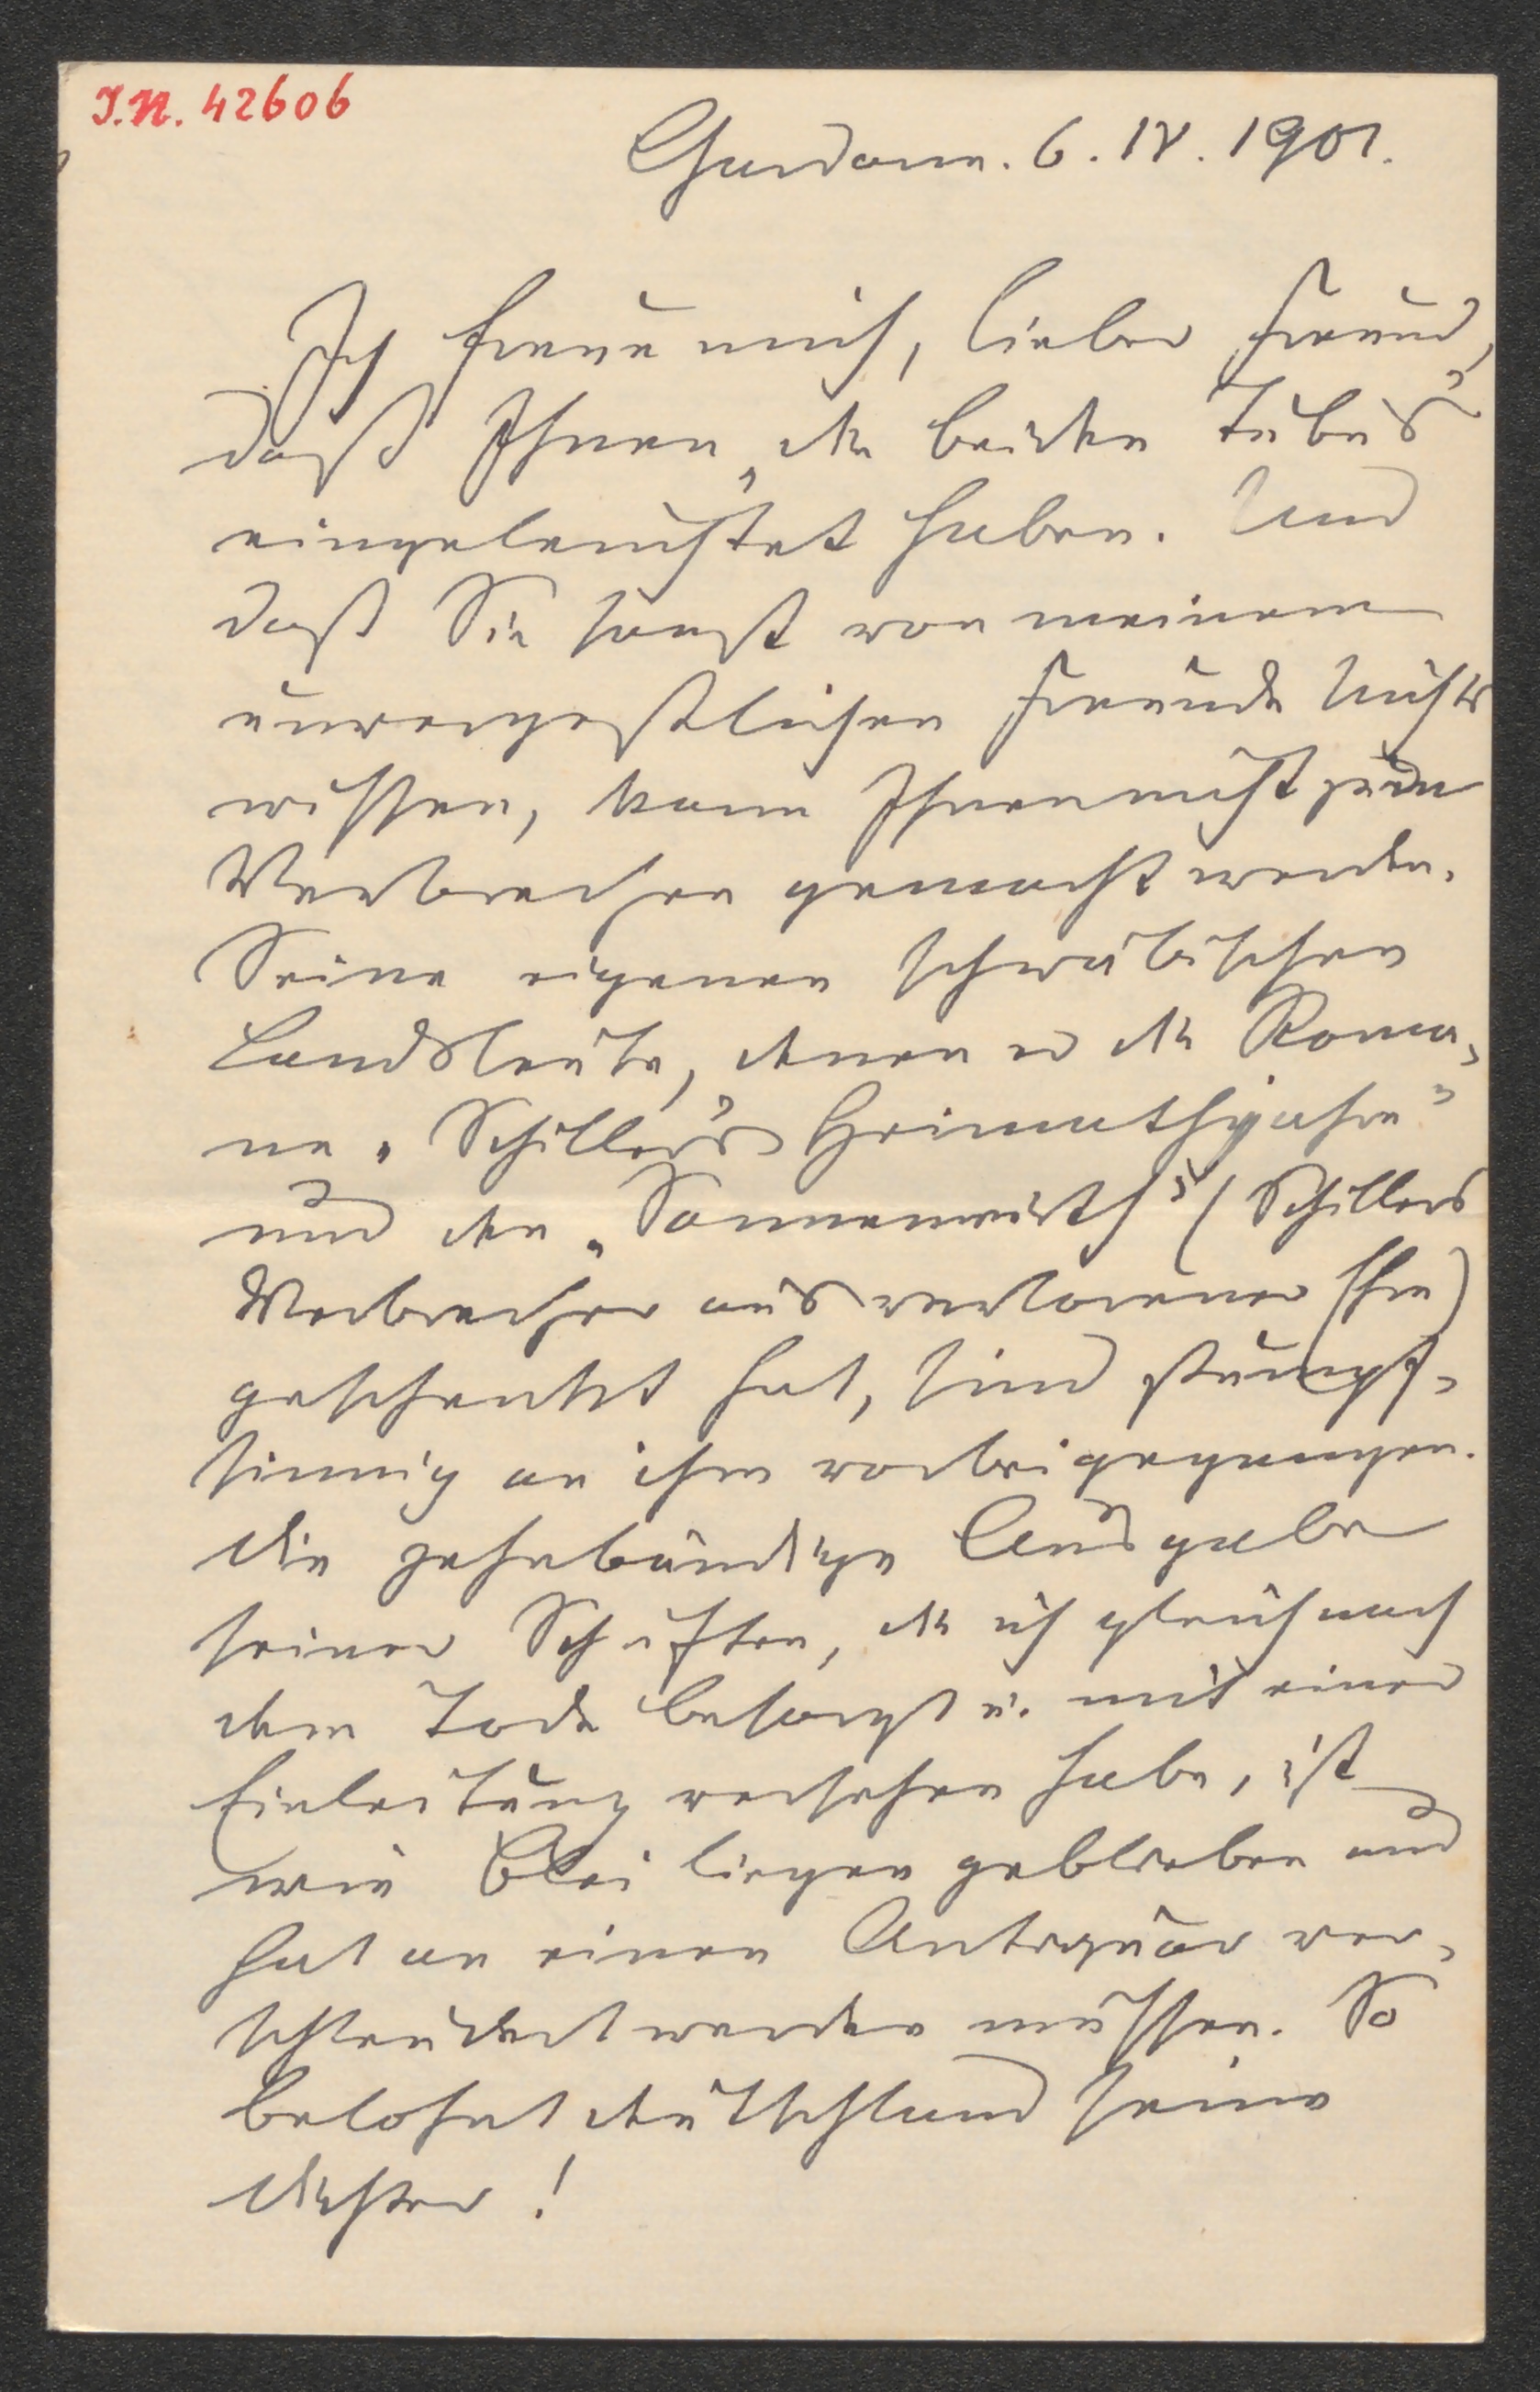 I.N. 42606
Gardone. 6. IV. 1901.
Ich freue mich, lieber Freund,
daß Ihnen „die beiden Tubus“
eingeleuchtet haben. Und
daß Sie sonst von meinem
unvergeßlichen Freunde Nichts
wissen, kann Ihnen nicht zum
Verbrechen gemacht werden.
Seine eigenen schwäbischen
Landsleute, denen er die Roma-
ne „Schiller's Heimathjahre“
und den „Sonnenwirth“ (Schillers
Verbrecher aus verlorener Ehre)
geschenkt hat, sind stumpf-
sinnig an ihm vorbeigegangen.
Die zehnbändige Ausgabe
seiner Schriften, die ich gleich nach
dem Tode besorgt u. mit einer
Einleitung versehen habe, ist
wie Blei liegen geblieben und
hat an einen Antiquar ver-
schleudert werden müssen. So
belohnt Deutschland seine
Dichter!